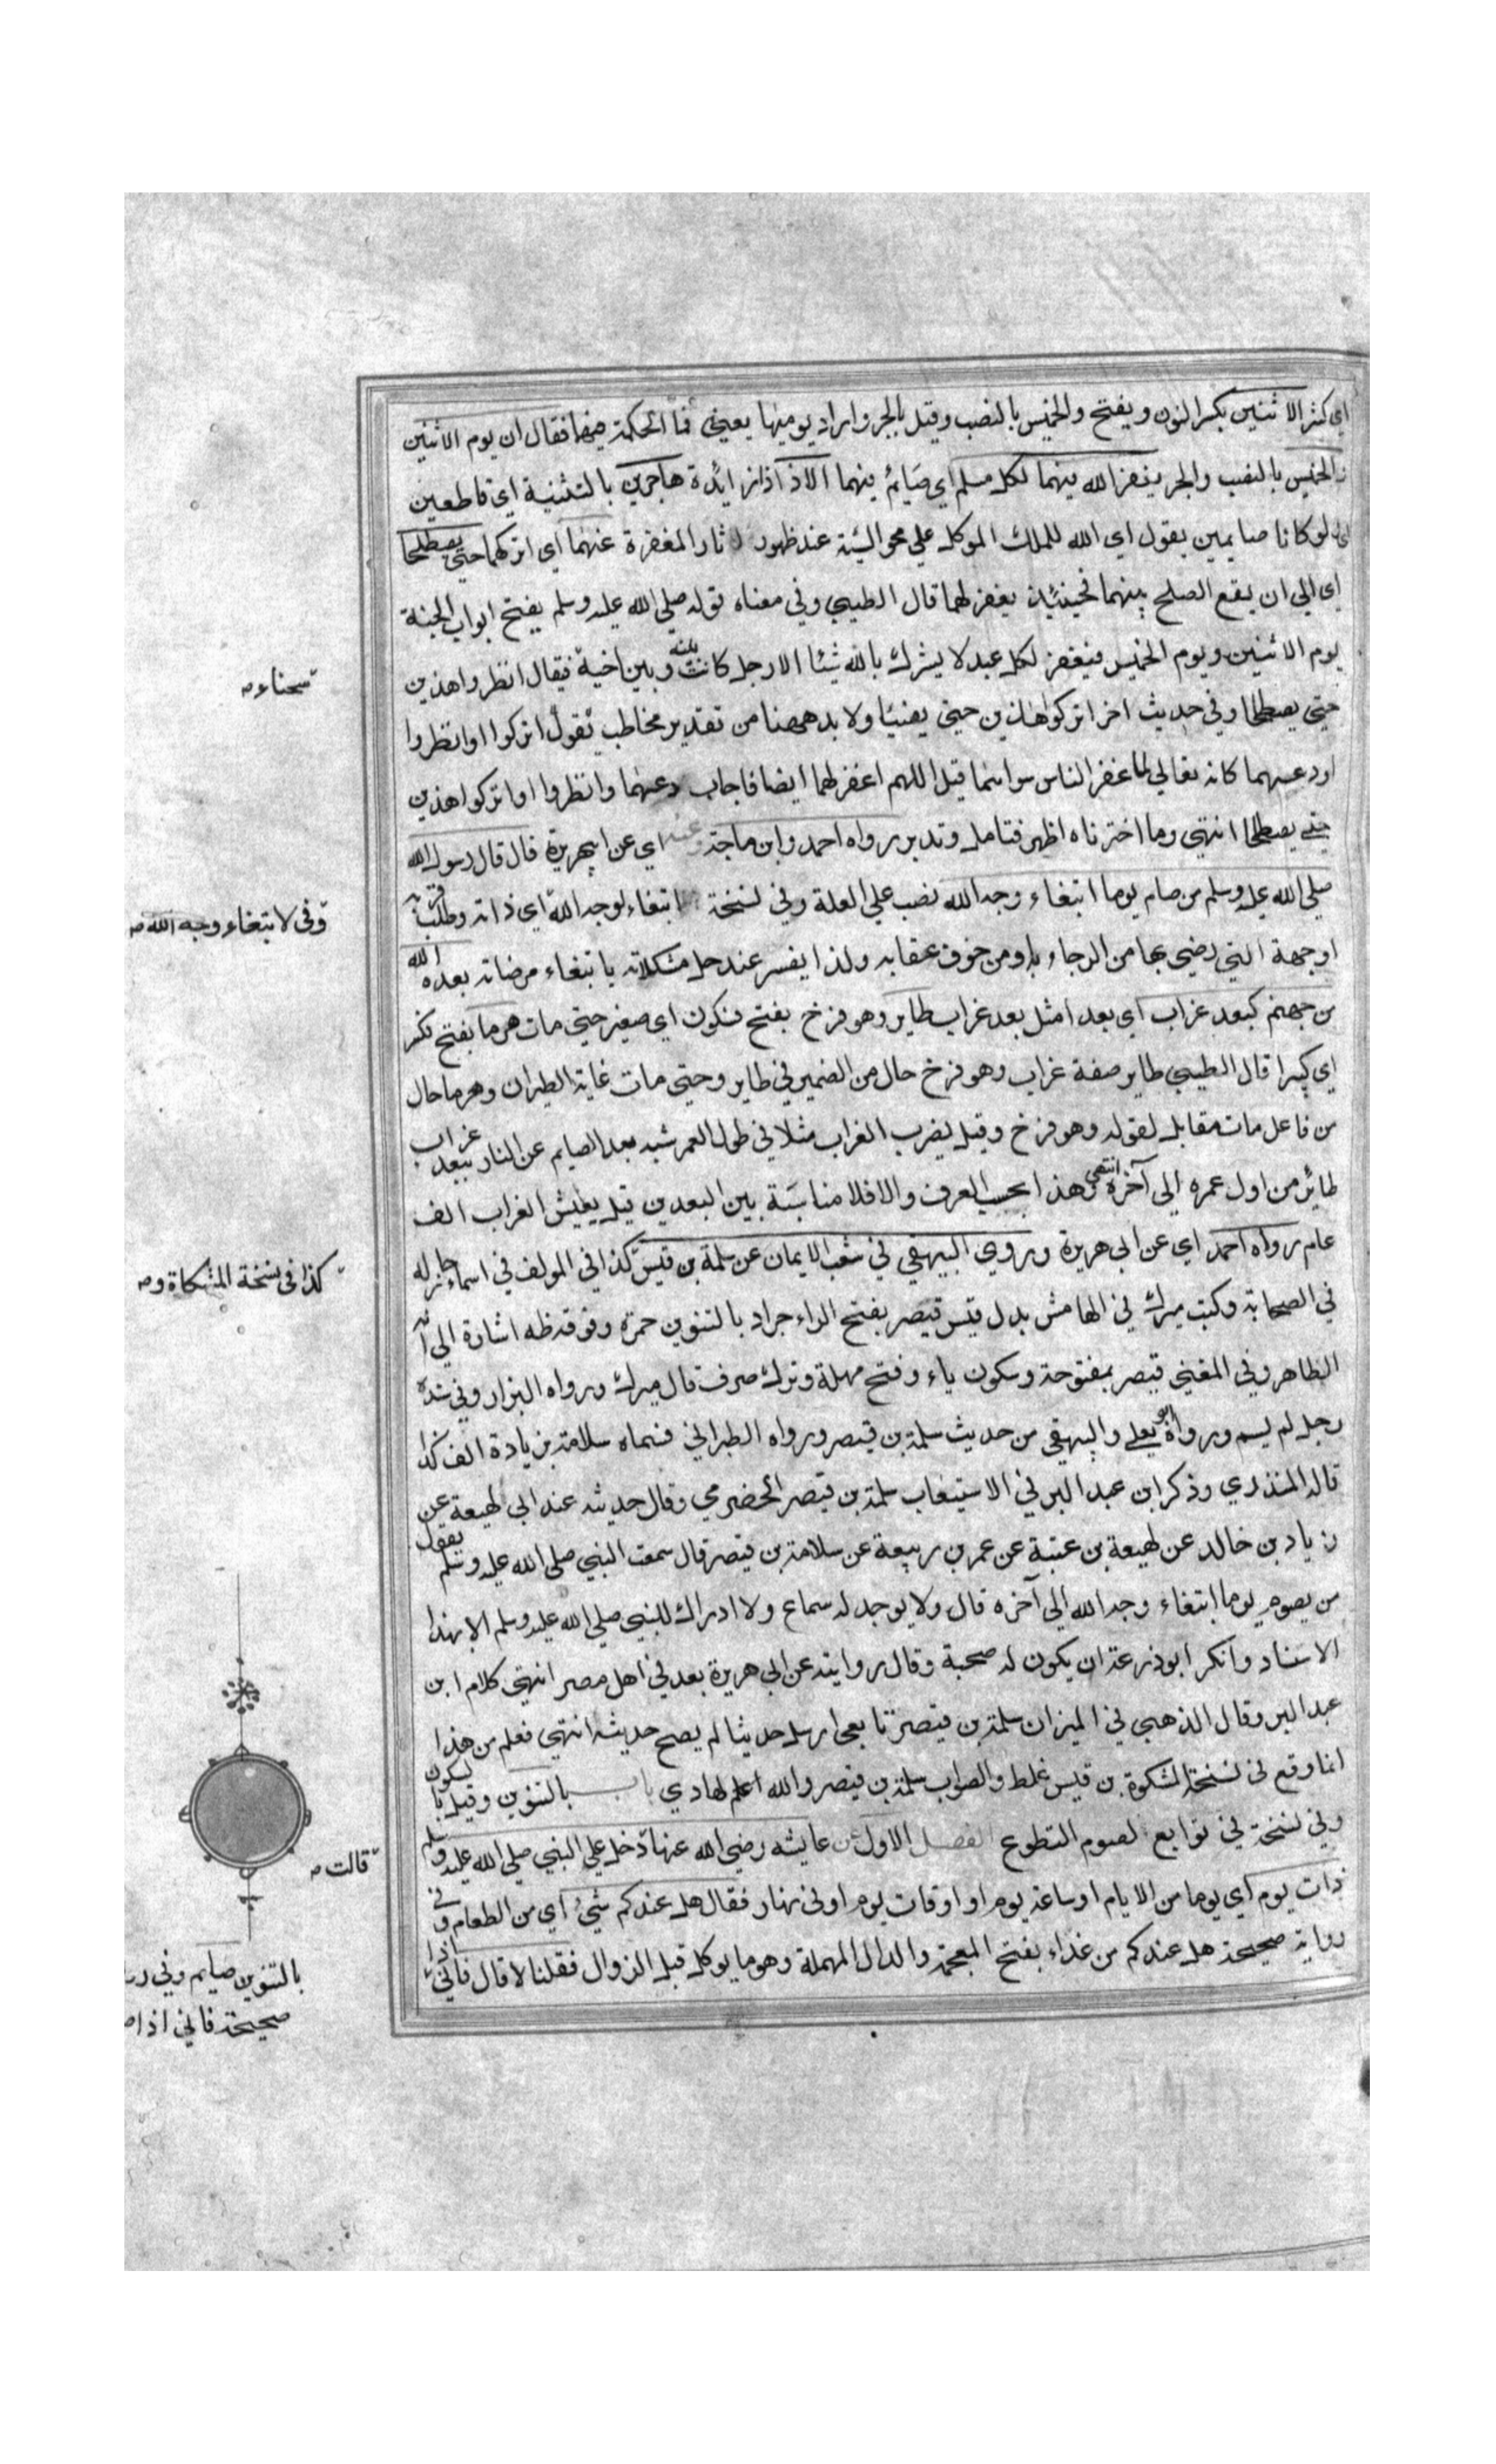 اي كثر الاثنين بكسر النون ويفتح والخميس بالنصب وقيل بالجر وايراد يوميهما يعني فما الحكمة فيهما فقال ان يوم الاثنين
والخميس بالنصب والجر يغفر الله فيهما لكل مسلم اي صايم فيهما الا ذا ذا زائدة هاجرين بالتثنية اي قاطعين
لو كانا صايمين يقول اي الله للملك الموكل علي محو السيئة عند ظهور اثار المغفرة عنهما اي اتركهما حتي يصطلحا
اي الي ان يقع الصلح بينهما فحينئذ يغفر لهما قال الطيبي وفي معناه قوله صلي الله عليه وسلم يفتح ابواب الجنة
يوم الاثنين ويوم الخميس فيغفر لكل عبد لا يشرك بالله شيئا الا رجل كانت بينه وبين اخيه فيقال انظروا هذين
حتي يصطلحا وفي حديث اخر اتركوا هذين حتي يفيئا ولا بد ههنا من تقدير مخاطب يقول اتركوا او انظروا
او دعهما كانه تعالي لما غفر الناس سواهما قيل اللهم اغفر لهما ايضا فاجاب دعهما وانظروا او اتركوا هذين
حتي يصطلحا انتهي وما اخترناه اظهر فتامل وتدبر رواه احمد وابن ماجة وعنه اي عن ابي هريرة قال قال رسول الله
صلي الله عليه وسلم من صام يوما ابتغاء وجه الله نصب علي العلة وفي نسخة ابتغاء لوجه الله اي ذاته وطلب قربه
او جهة التي رضي بها من الرجاء به ومن خوف عقابه ولذا يفسر عند حل مشكلاته بابتغاء مرضاته بعده الله
من جهنم كبعد غراب اي بعدا مثل بعد غراب طاير وهو فرخ بفتح فسكون اي صغير حتي مات هرما بفتح فكسر
اي كبيرا قال الطيبي طاير صفة غراب وهو فرخ حال من الضمير في طاير وحتي مات غاية الطيران وهرما حال
من فاعل مات مقابل لقوله وهو فرخ وقيل يضرب الغراب مثلا في طول العمر شبه بعد الصايم عن النار ببعد غراب
طائر من اول عمره الى آخره انتهى وهذا بحسب العرف والا فلا مناسبة بين البعدين قيل يعيش الغراب الف
عام رواه احمد اي عن ابي هريرة وروي البيهقي في شعب الايمان عن سلمة بن قيس كذا في المولف في اسماء رجاله
في الصحابة وكتب ميرك في الهامش بدل قيس قيصر بفتح الراء جراد بالتنوين حمرة وفوقه ظه اشارة الي انه
الظاهر وفي المغني قيصر بمفتوحة وسكون ياء وفتح مهملة وترك صرف قال ميرك ورواه البزار وفي سنده
رجل لم يسم ورواه ابو يعلي والبيهقي من حديث سلمة بن قيصر ورواه الطبراني فسماه سلامة بزيادة الف كذا
قاله المنذري وذكر ابن عبد البر في الاستيعاب سلمة بن قيصر الحضرمي وقال حديثه عند ابي لهيعة عن
زياد بن خالد عن لهيعة بن عتبة عن عمر بن ربيعة عن سلامة بن قيصر قال سمعت النبي صلى الله عليه وسلم يقول
من يصوم يوما ابتغاء وجه الله الي آخره قال ولا يوجد له سماع ولا ادراك للنبي صلي الله عليه وسلم الا بهذا
الاسناد وانكر ابو زرعة ان يكون له صحبة وقال روايته عن ابي هريرة يعد في اهل مصر انتهي كلام ابن
عبد البر وقال الذهبي في الميزان سلمة بن قيصر تابعي ارسل حديثا لم يصح حديثه انتهي فعلم من هذا
انما وقع في نسخة المشكوة بن قيس غلط والصواب سلمة بن قيصر والله اعلم لهادي باب بالتنوين وقيل بالسكون
وفي نسخة في توابع لصوم التطوع الفصل الاول عن عايشه رضي الله عنها دخل علي النبي صلي الله عليه وسلم
ذات يوم اي يوما من الايام او ساعة يوم او اوقات يوم او في نهار فقال هل عندكم شيء اي من الطعام وفي
رواية صحيحة هل عندكم من غذاء بفتح المعجمة والدال المهملة وهو ما يوكل قبل الزوال فقلنا لا قال فاني اذا
سحناءم
وفى لابتغاء وجه الله م
كذا فى نسخة المشكاة م
قالت م
بالتنوين صايم وفي
صحيحة فاني اذا